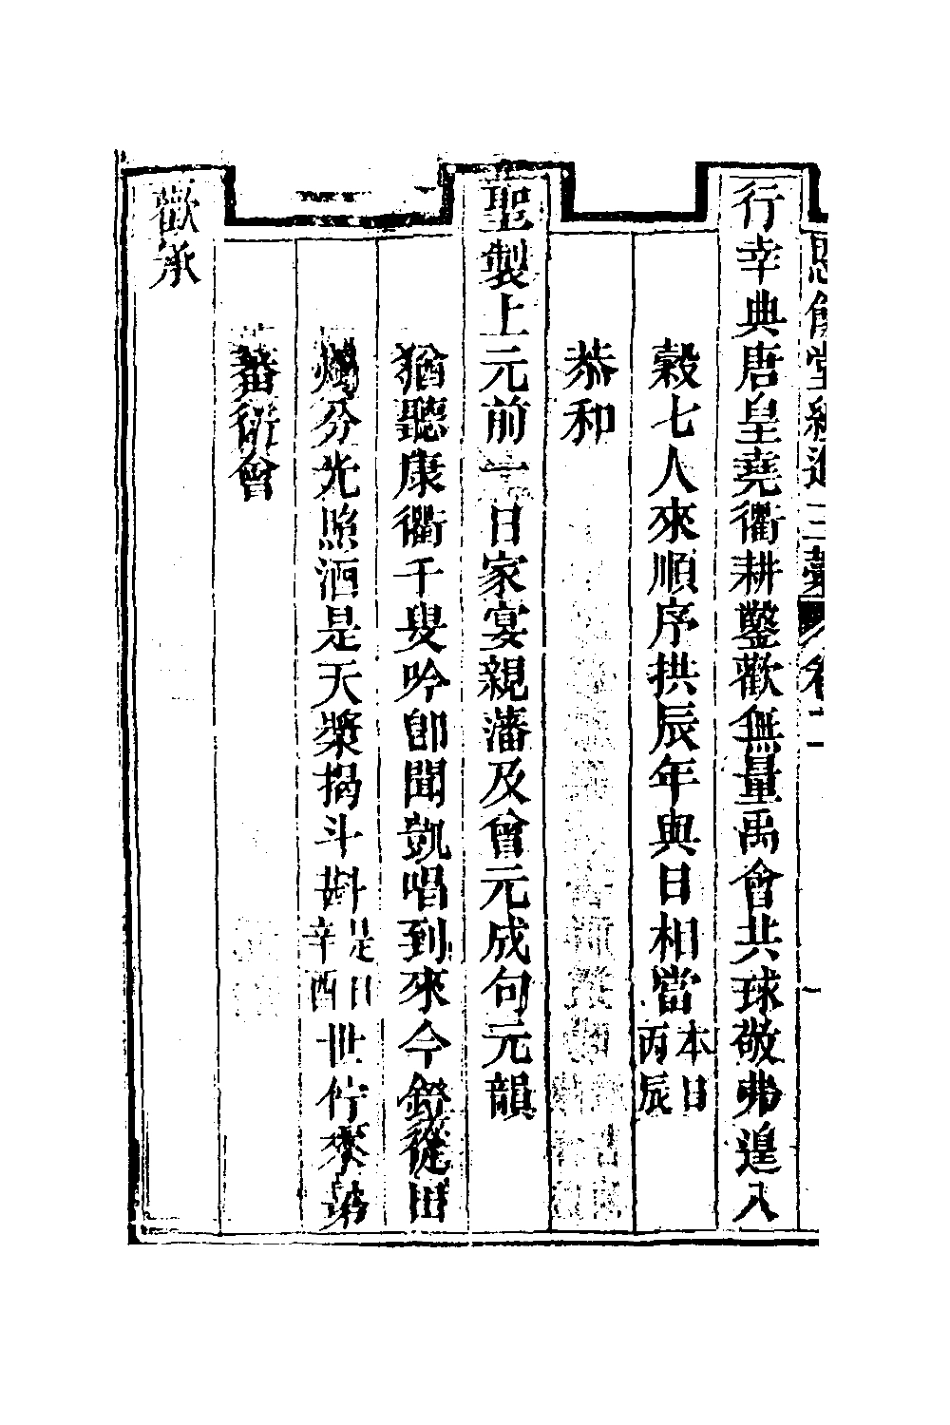 思餘堂經進三藁 卷二 一
行幸典唐皇堯衢耕鑿歡無量禹會共球敬弗遑入
穀七人來順序拱辰年與日相當本日丙辰
恭和
聖製上元前一日家宴親藩及曾元成句元韻
猶聽康衢千叟吟卽聞凱唱到來今鐙從田
燭分光照酒是天漿揭斗斟是日辛酉世佇來
蕃衍會
歡承